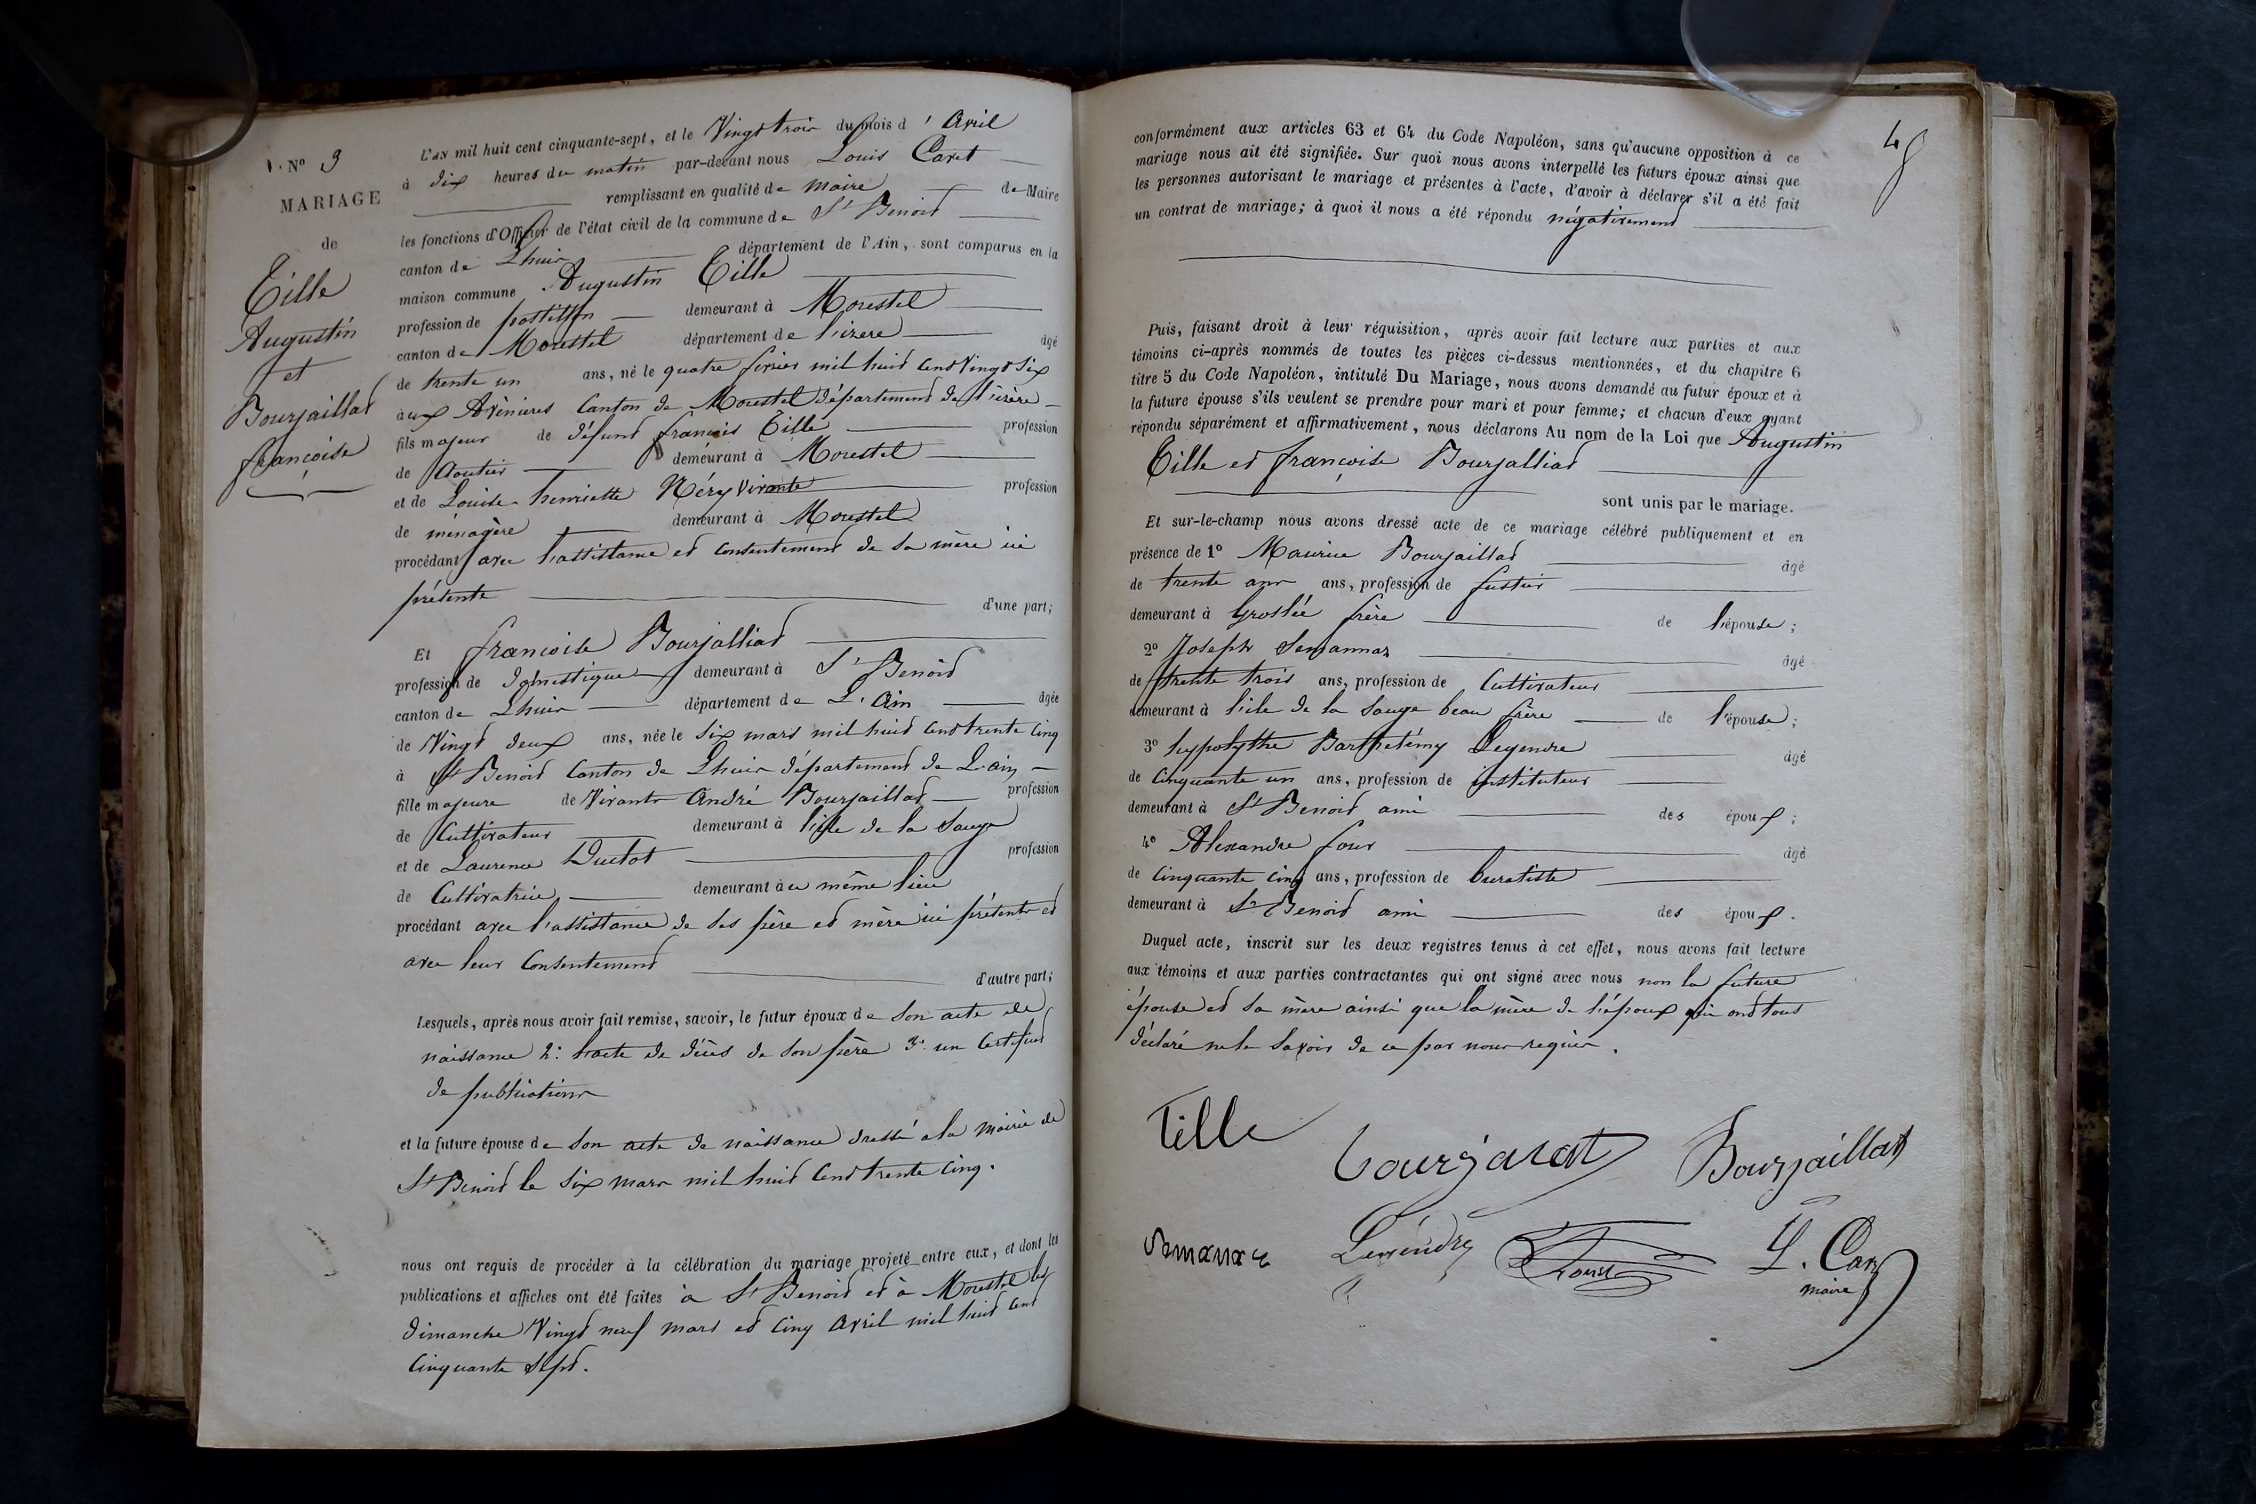 N° 3
MARIAGE
de
Tille
Augustin
et
Bourjaillat
françoise
L'AN mil huit cent cinquante-sept, et le Vingt trois du mois d'Avril
à dix heures du matin par-devant nous Louis Caret
remplissant en qualité de maire de Maire
les fonctions d'Officier de l'état civil de la commune de St Benoit
canton de Lhuis département de l'Ain, sont comparus en la
maison commune Augustin Tille
profession de postillon demeurant à Morestel
canton de Morestel département de l'izere âgé
de trente un ans, né le quatre fevrier mil huit cent Vingt Six
aux Avènieres Canton de Morestel département de l'isère
fils majeur de défunt francois Tille profession
de demeurant à Morestel
et de Louise henriette Néry Vivante profession
de ménagère demeurant à Morestel
procédant avec l'assistance et consentement de sa mère ici
présente d'une part;
Et francoise Bourjalliat
profession de domestique demeurant à St Benoit
canton de Lhuis département de L'Ain âgée
de Vingt deux ans, née le six mars mil huit cent trente cinq
à St Benoit Canton de Lhuis département de L'ain
fille majeure de Vivants André Bourjaillat profession
de Cultivateur demeurant à l'isle de la Sauge
et de Laurence Duclot profession
de Cultivatrice demeurant à ce même lieu
procédant avec l'assistance de ses père et mère ici présents et
avec leur Consentement d'autre part;
Lesquels, après nous avoir fait remise, savoir, le futur époux de son acte de
naissance 2° l'acte de décès de son père 3° un Certificat
de publications
et la future épouse de son acte de naissance dressé a la mairie de
St Benoit le six mars mil huit Cent trente Cinq.
nous ont requis de procéder à la célébration du mariage projeté entre eux, et dont les
publications et affiches ont été faites à St Benoit et à Morestel les
dimanche Vingt neuf mars et Cinq Avril mil huit cent
Cinquante Sept.
48
conformément aux articles 63 et 64 du Code Napoléon, sans qu'aucune opposition à ce
mariage nous ait été signifiée. Sur quoi nous avons interpellé les futurs époux ainsi que
les personnes autorisant le mariage et présentes à l'acte, d'avoir à déclarer s'il a été fait
un contrat de mariage; à quoi il nous a été répondu négativement
Puis, faisant droit à leur réquisition, après avoir fait lecture aux parties et aux
témoins ci-après nommés de toutes les pièces ci-dessus mentionnées, et du chapitre 6
titre 5 du Code Napoléon, intitulé Du Mariage, nous avons demandé au futur époux et à
la future épouse s'ils veulent se prendre pour mari et pour femme; et chacun d'eux ayant
répondu séparément et affirmativement, nous déclarons Au nom de la Loi que Augustin
Tille et françoise Bourjalliat
sont unis par le mariage.
Et sur-le-champ nous avons dressé acte de ce mariage célébré publiquement et en
présence de 1° Maurice Bourjaillat âgé
de trente ans ans, profession de fustier
demeurant à Groslée frère de l'épouse;
2° Joseph Semannaz âgé
de trente trois ans, profession de Cultivateur
demeurant à l'ile de la Sauge beau frère de l'épouse;
3° hypolythe Barthelémy Legendre âgé
de Cinquante un ans, profession de instituteur
demeurant à St Benoit ami des époux;
4° Alexandre four âgé
de Cinquante cinq ans, profession de buratiste
demeurant à St Benoit ami des époux.
Duquel acte, inscrit sur les deux registres tenus à cet effet, nous avons fait lecture
aux témoins et aux parties contractantes qui ont signé avec nous non la future
épouse et sa mère ainsi que la mère de l'époux qui ont tous
déclaré ne le savoir de ce par nous requis.
Tille
Bourjaillat
Legendre
four
L. Caret
maire